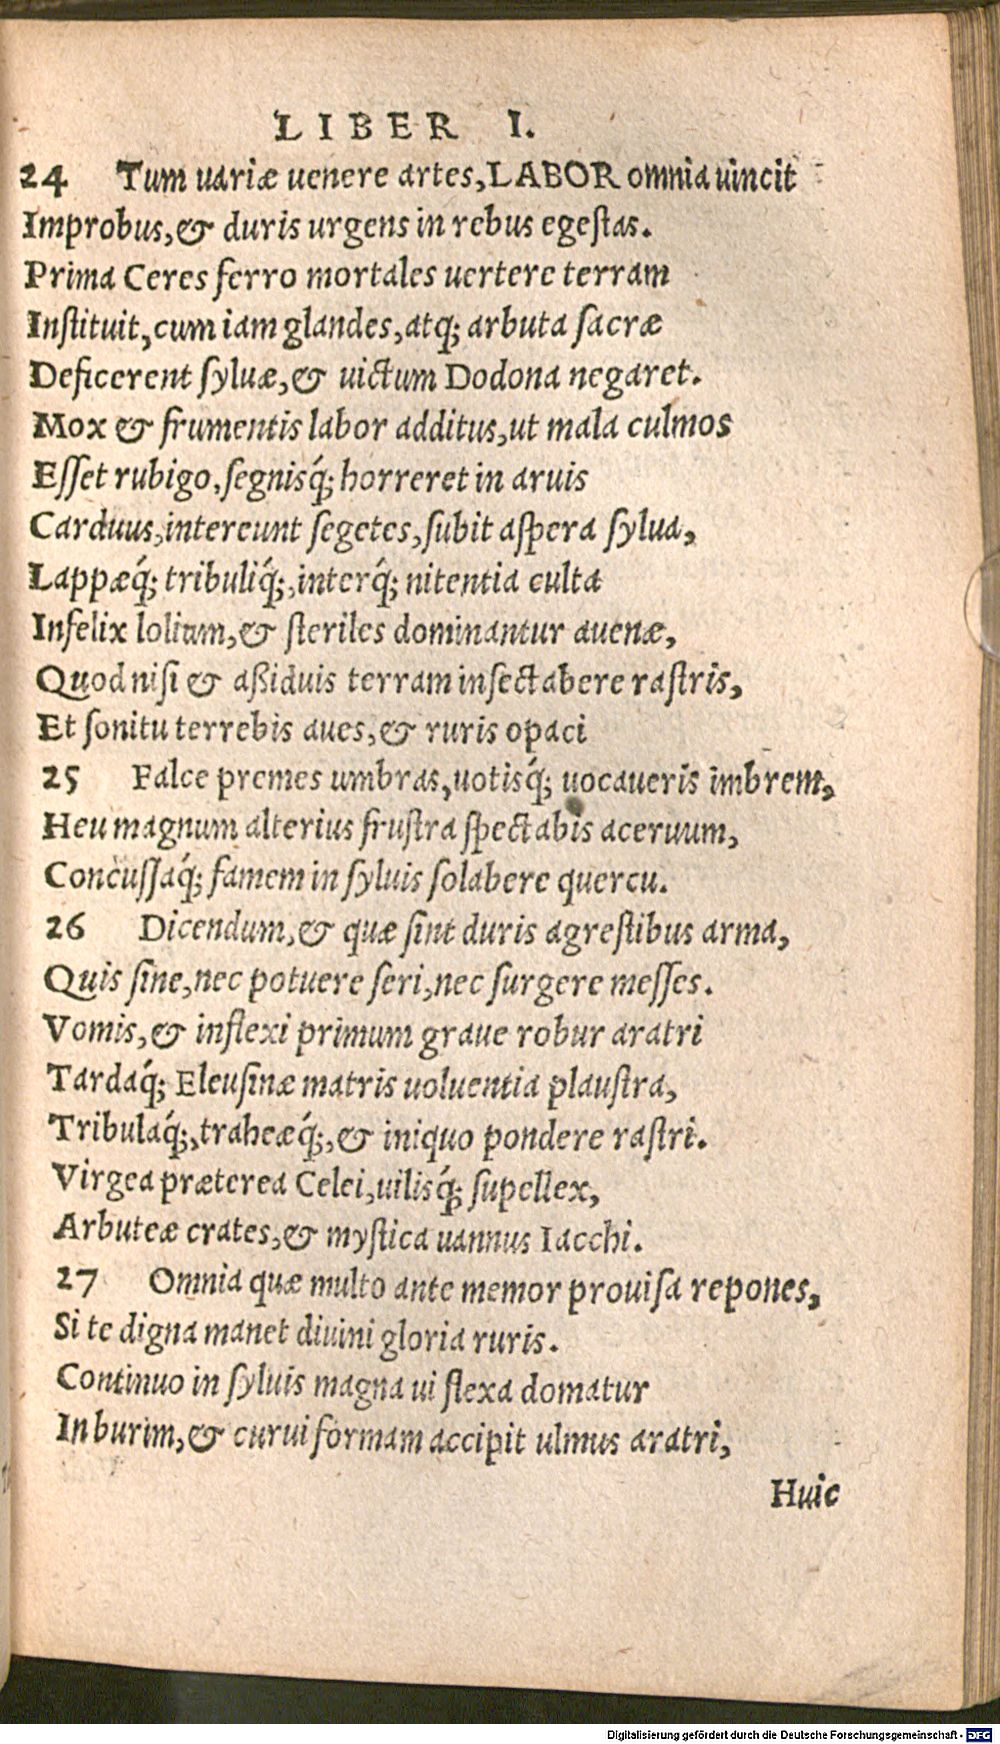 LIBER I.
24 Tum uariæ uenere artes, LABOR omnia uincit
Improbus, & duris urgens in rebus egeſtas.
Prima Ceres ferro mortales uertere terram
Inſtituit, cum iam glandes, atq; arbuta ſacræ
Deficerent ſyluæ, & uictum Dodona negaret.
Mox & frumentis labor additus, ut mala culmos
Eſſet rubigo, ſegnisq́; horreret in aruis
Carduus, intereunt ſegetes, ſubit aſpera ſylua,
Lappæq́; tribuliq́;, interq́; nitentia culta
Infelix lolium, & ſteriles dominantur auenæ,
Quod niſi & aßiduis terram inſectabere raſtris,
Et ſonitu terrebis aues, & ruris opaci
25 Falce premes umbras, uotisq́; uocaueris imbrem,
Heu magnum alterius fruſtra ſpectabis aceruum,
Concuſſaq́; famem in ſyluis ſolabere quercu.
26 Dicendum, & quæ ſint duris agreſtibus arma,
Quis ſine, nec potuere ſeri, nec ſurgere meſſes.
Vomis, & inflexi primum graue robur aratri
Tardaq́; Eleuſinæ matris uoluentia plauſtra,
Tribulaq́;, traheæq́;, & iniquo pondere raſtri.
Virgea præterea Celei, uilisq́; ſupellex,
Arbuteæ crates, & myſtica uannus Iacchi.
27 Omnia quæ multo ante memor prouiſa repones,
Si te digna manet diuini gloria ruris.
Continuo in ſyluis magna ui flexa domatur
In burim, & curui formam accipit ulmus aratri,
Huic
Digitalisierung gefördert durch die Deutsche Forschungsgemeinschaft - DFG